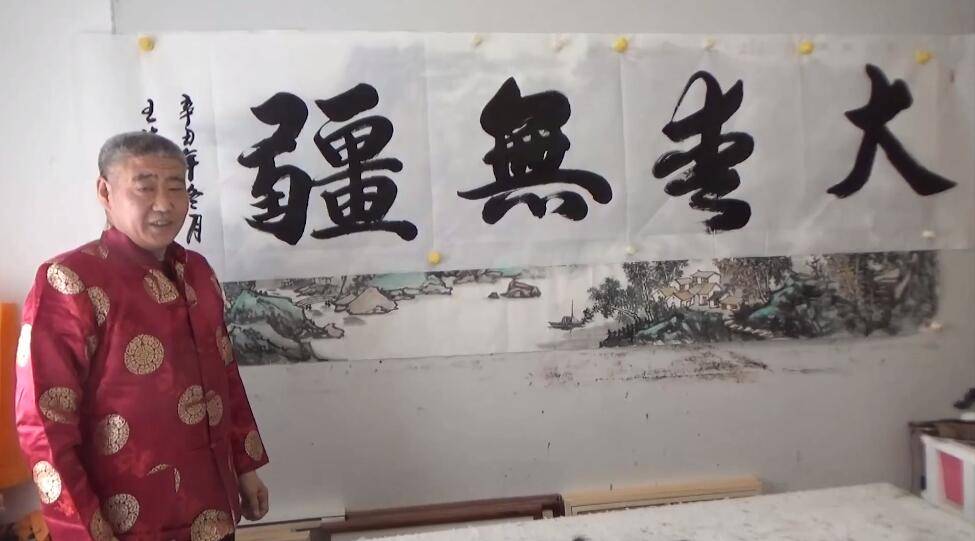 大愛無疆
辛丑年冬月
王